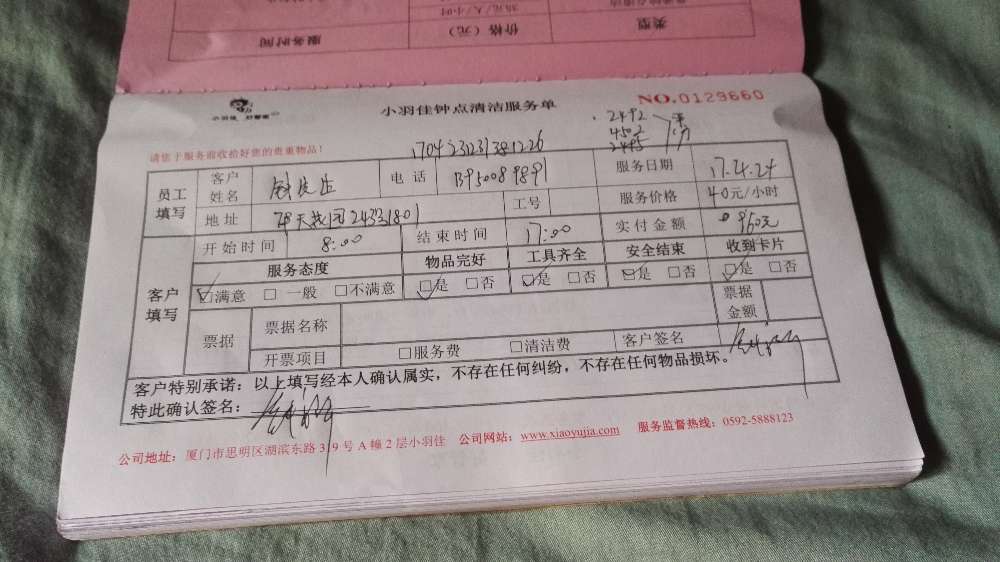 类型
价格（元）
服务时间
35元/人/小时
小羽佳 好管家
小羽佳钟点清洁服务单
NO.0129660
请您于服务前收拾好您的贵重物品！
2492
4502
2445
员工填写
客户姓名
电话
服务日期 17.4.24
地址
工号
服务价格 40元/小时
客户填写
开始时间 8:00 结束时间 17:00 实付金额 960元
服务态度 物品完好 工具齐全 安全结束 收到卡片
☑满意 □一般 □不满意 ☑是 □否 ☑是 □否 ☑是 □否 ☑是 □否
票据 票据名称 票据金额
开票项目 □服务费 □清洁费 客户签名
客户特别承诺：以上填写经本人确认属实，不存在任何纠纷，不存在任何物品损坏。
特此确认签名：
公司地址：厦门市思明区湖滨东路319号A幢2层小羽佳 公司网站：www.xiaoyujia.com 服务监督热线：0592-5888123